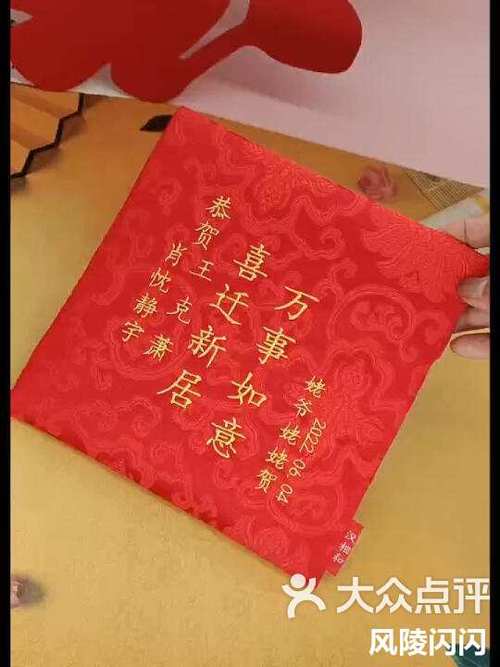 恭贺王克萧
肖忱静宇
喜迁新居
万事如意
姥爷姥姥贺
2022.06.04
大众点评
风陵闪闪